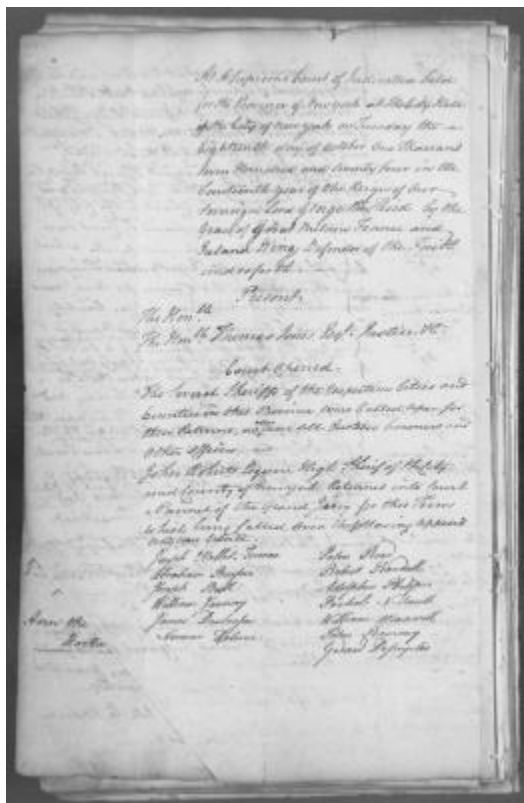 At a Supreme Court of Judicature held
for the Province of New York at the City Hall
of the City of New York on Tuesday the
Eighteenth day of October One Thousand
Seven Hundred and Seventy four in the
fourteenth year of the Reign of Our
Sovereign Lord George the Third by the
Grace of God of Great Britain France and
Ireland King Defender of the Faith
and so forth.
Present.
The Honble
The Honble Thomas Jones Esqr. Justice &c.
Court Opened.
The Several Sheriffs of the respective Cities and
Counties in this Province were Called upon for
their Returns, as were all Justices Coroners and
Other Officers
John Roberts Esquire High Sheriff of the City
and County of New York Returned into Court
a Pannel of the Grand Jury for this Term
which being Called Over the following appeared
Joseph Hallet
Abraham
Joseph
William
James
Peter
Robert
Adolphus Philipse
William Maxwell
Peter
Gerard